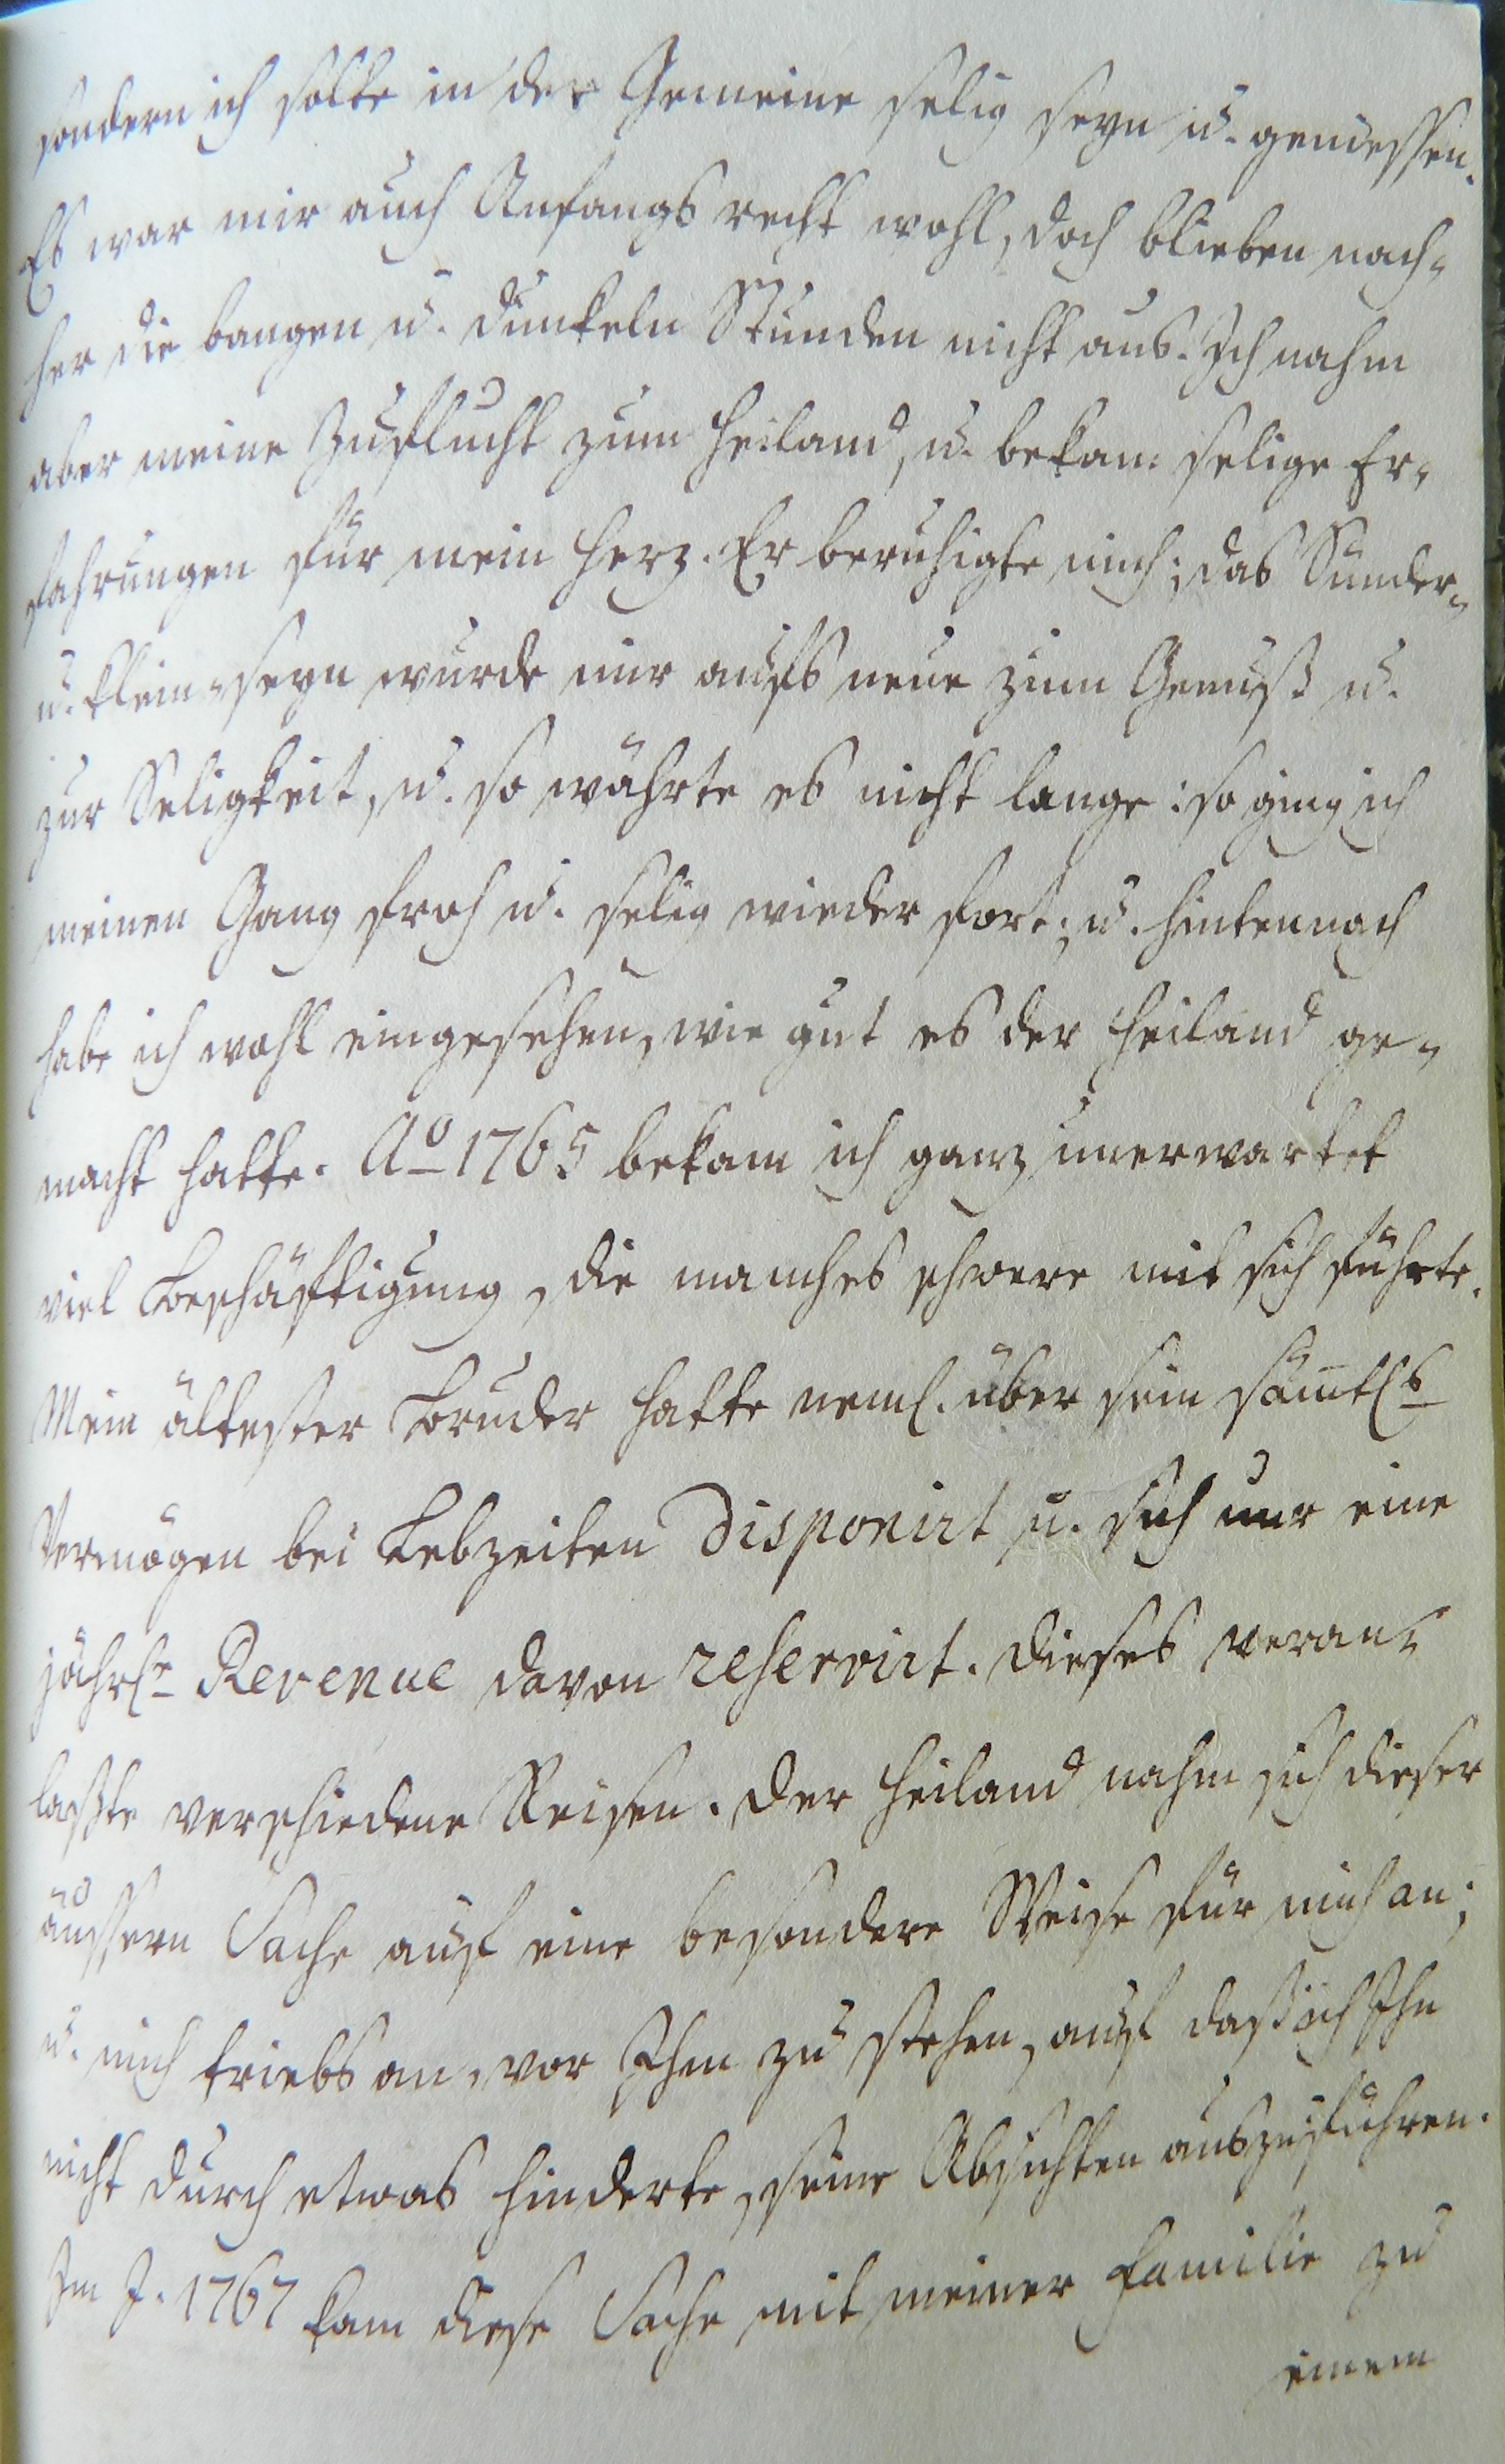 sondern ich solte in der Gemeine selig seyn u. geniessen.
Es war mir auch Anfangs recht wohl, doch blieben nach-
her die bangen u. dunkeln Stunden nicht aus. Ich nahm
aber meine Zuflucht zum Heiland, u. bekam selige Er-
fahrungen für mein Herz. Er beruhigte mich; das Sünder-
u. klein-seyn wurde mir aufs neue zum Genuß u.
zur Seligkeit, u. so währte es nicht lange: so ging ich
meinen Gang froh u. selig wieder fort; u. hintennach
habe ich wohl eingesehen, wie gut es der Heiland ge-
macht hatte. Ao 1765 bekam ich ganz unerwartet
viel Beschäftigung, die manches schwere mit sich führte.
Mein ältester Bruder hatte neml. über sein sämtls
Vermögen bei Lebzeiten disponirt u. sich nur eine
jährle Revenue davon reservirt. Dieses veran-
laßte verschiedene Reisen. Der Heiland nahm sich dieser
äussern Sache auf eine besondere Weise für mich an;
u. mich triebs an, vor Ihm zu stehen, auf daß ich Ihn
nicht durch etwas hinderte, seine Absichten auszuführen.
Im J. 1767 kam diese Sache mit meiner Familie zu
einem